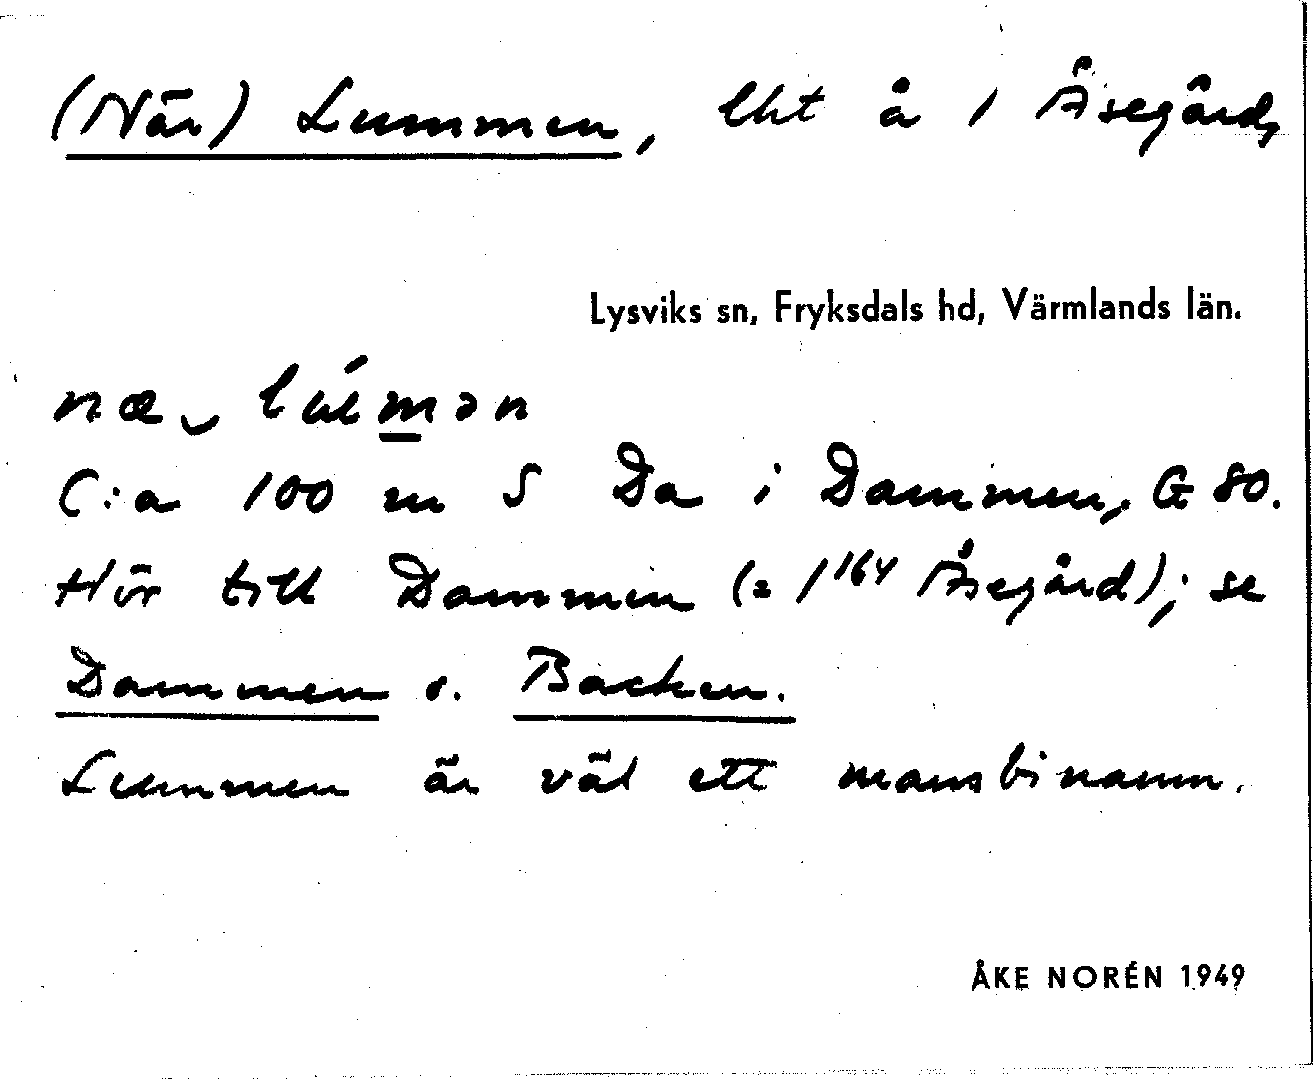 (När) Lummen, lht å 1 Åsegård,
Lysviks sn, Fryksdals hd, Värmlands län.
C:a 100 m S Da i Dammen, G 80.
Hör till Dammen (= 1¹⁶⁴ Åsegård); se
Dammen o. Backen.
Lummen är väl ett mansbinamn.
ÅKE NORÉN 1949